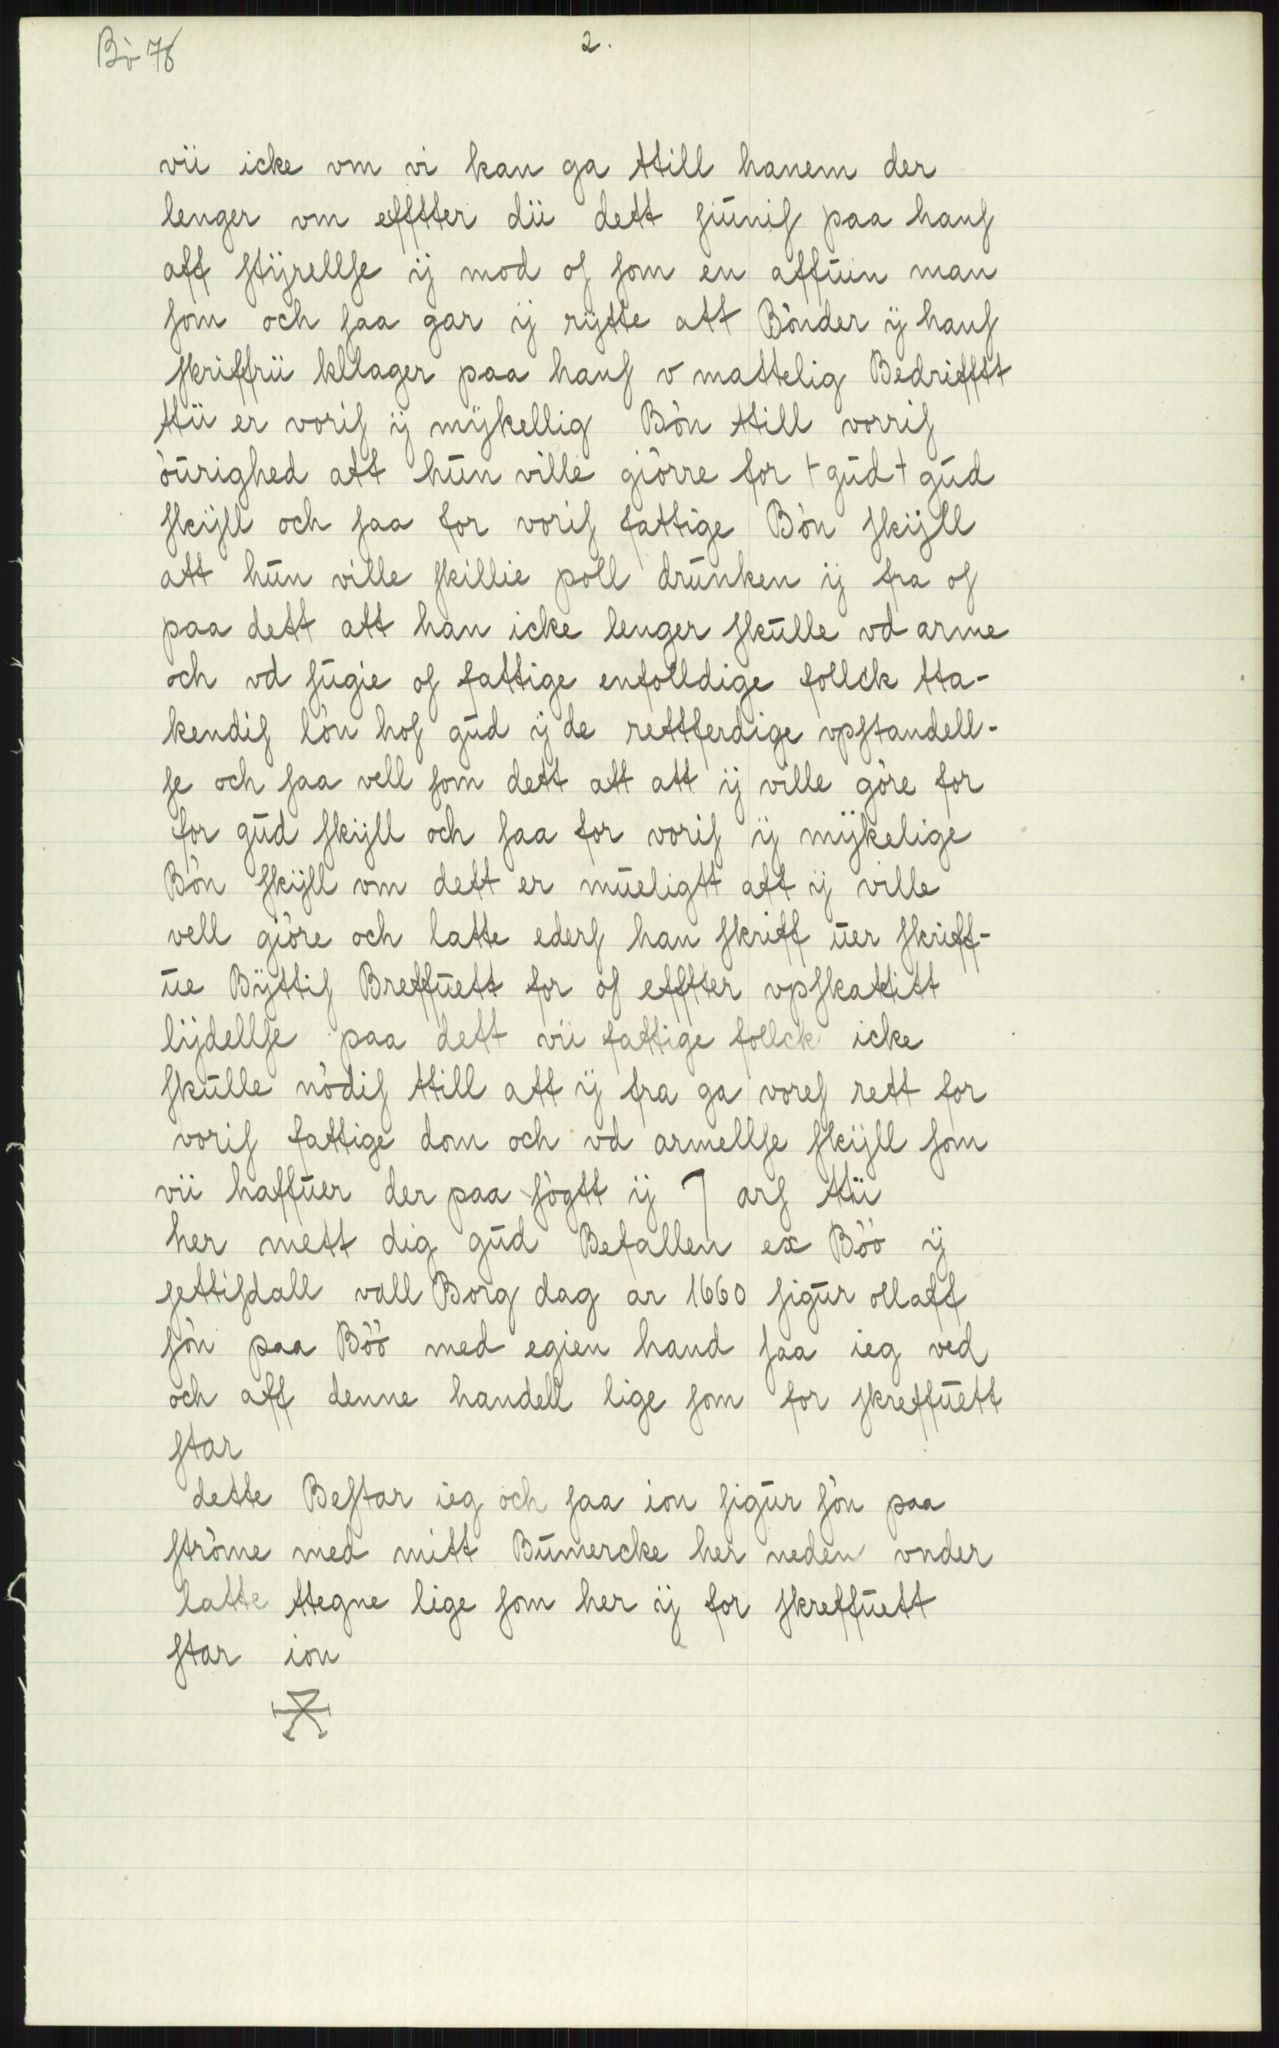 Bö 76
2.
vii icke vm vi kan ga ttill hanem der
lenger vm efftter dii dett siunis paa hans
aff stÿrellse ÿ mod os som en affuin man
som och saa gar ÿ rÿtte att Bönder ÿ hans
skriffrii kllager paa hans v mattelig Bedrifftt
ttii er voris ÿ mÿkellig Bön ttill vorris
öurighed att hun ville giörre for + gud + gud
skÿll och saa for voris fattige Bön skÿll
att hun ville skillie poll drunken ÿ fra os
paa dett att han icke lenger skulle vd arme
och vd sugie os fattige enfolldige follck tta-
kendis lön hos gud ÿ de rettferdige vpstandell-
se och saa vell som dett att att ÿ ville göre for
for gud skÿll och saa for voris ÿ mÿkelige
Bön skÿll vm dett er mueligtt att ÿ ville
vell giöre och latte eders han skriff uer skriff-
ue Bÿttis Breffuett for os efftter vpskattitt
lÿdellse paa dett vii fattige follck icke
skulle nödis ttill att ÿ fra ga vores rett for
voris fattige dom och vd armellse skÿll som
vii haffuer der paa sögtt ÿ 7 ars ttii
her mett dig gud Befallen ex Böö ÿ
settisdall vall Borg dag ar 1660 sigur ollaff
sön paa Böö med egien hand saa ieg ved
och aff denne handell lige som for skreffuett
star
dette Bestar ieg och saa ion sigur sön paa
ströme med mitt Bumercke her neden vnder
latte ttegne lige som her ÿ for skreffuett
star ion